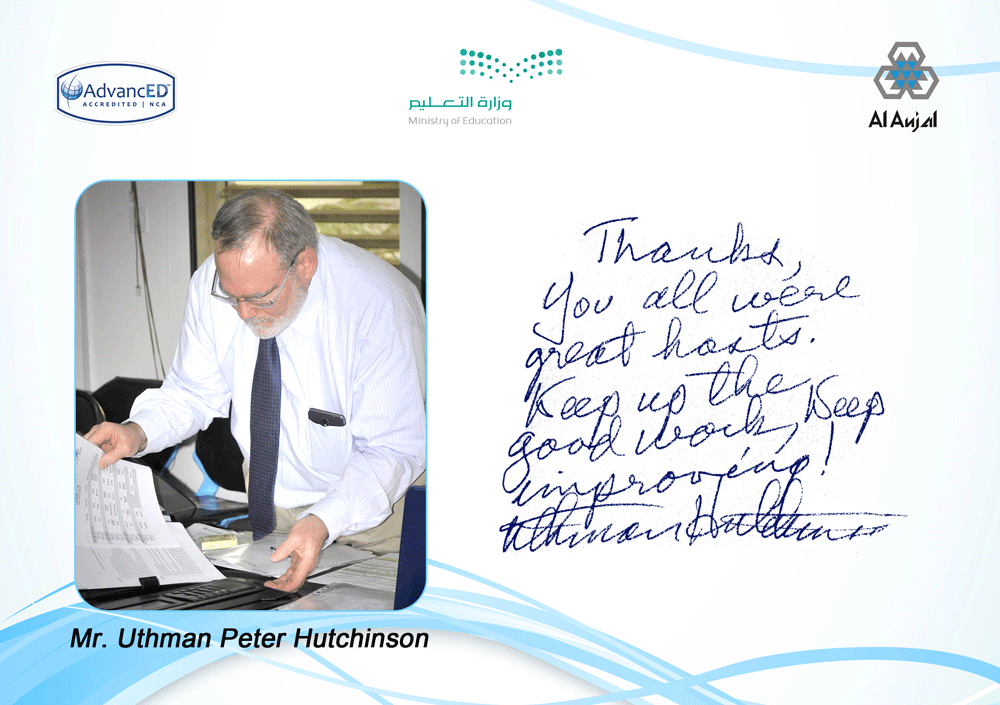 AdvancED
ACCREDITED | NCA
وزارة التعليم
Ministry of Education
Al Anjal
Thanks,
You all were
great hosts.
Keep up the
good work, Keep
improving!
Uthman Hutchinson
Mr. Uthman Peter Hutchinson